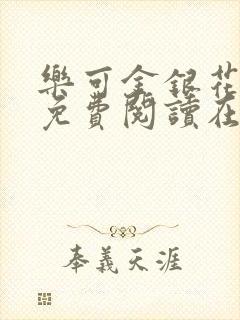 樂可金銀花
免費閱讀在
奉義天涯